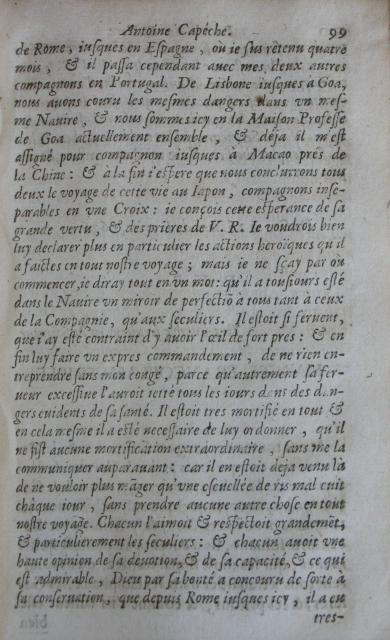 Antoine Capéche. 99
de Rome, iusques en Espagne, ou ie fus retenu quatre
mois, & il passa cependant auec mes deux autres
compagnons en Portugal. De Lisbone iusques à Goa,
nous auons couru les mesmes dangers dans vn mes-
me Nauire, & nous sommes icy en la Maison Professe
de Goa actuellement ensemble, & déja il m'est
assigné pour compagnon iusques à Macao prés de
la Chine: & à la fin i'espere que nous conclurrons tous
deux le voyage de cette vie au Iapon, compagnons inse-
parables en vne Croix: ie conçois cette esperance de sa
grande vertu, & des prieres de V. R. Ie voudrois bien
luy declarer plus en particulier les actions heroïques qu'il
a faictes en tout nostre voyage; mais ie ne sçay par où
commencer, ie diray tout en vn mot: qu'il a tousiours esté
dans le Nauire vn miroir de perfectiõ à tous tant à ceux
de la Compagnie, qu'aux seculiers. Il estoit si feruent,
que i'ay esté contraint d'y auoir l'œil de fort pres: & en
fin luy faire vn expres commandement, de ne rien en-
treprendre sans mon congé, parce qu'autrement sa fer-
ueur excessiue l'auroit ietté tous les iours dans des dan-
gers euidents de sa santé. Il estoit tres mortifié en tout &
en cela mesme il a esté necessaire de luy ordonner, qu'il
ne fist aucune mortification extraordinaire, sans me la
communiquer auparauant: car il en estoit déja venu là
de ne vouloir plus mãger qu'vne escuellée de ris mal cuit
châque iour, sans prendre aucune autre chose en tout
nostre voyage. Chacun l'aimoit & respectoit grandemẽt,
& particulièrement les seculiers: & chacun auoit vne
haute opinion de sa deuotion, & de sa capacité, & ce qui
est admirable, Dieu par sa bonté a concouru de sorte à
sa conseruation, que depuis Rome iusques icy, il a eu
tres-